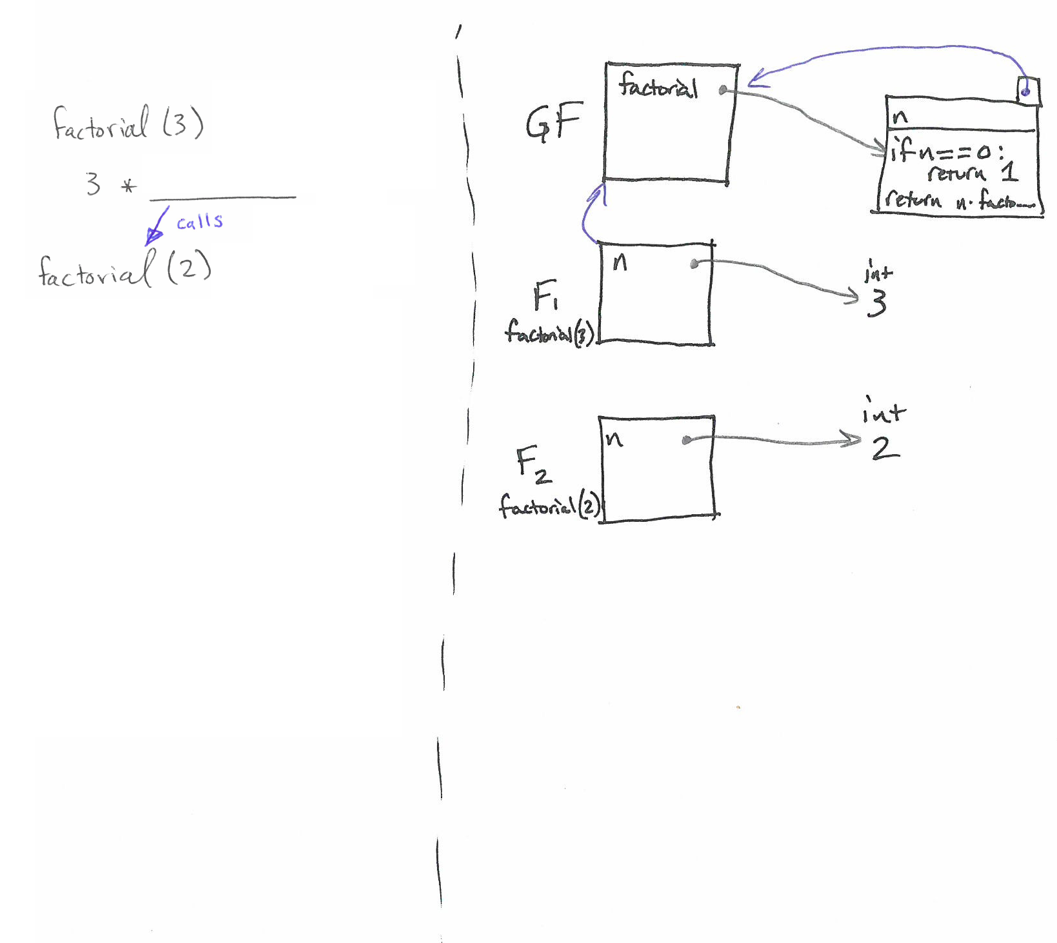 factorial (3)
3 * ________
calls
factorial (2)
GF
factorial
n
if n==0:
return 1
return n· facto......
F1
factorial(3)
n
int
3
F2
factorial(2)
n
int
2